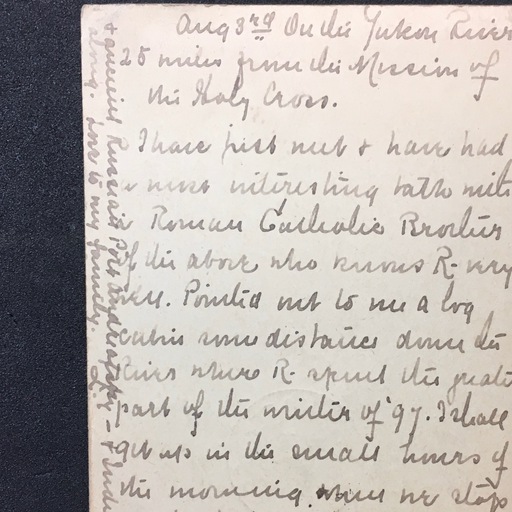 Aug 3rd On the Yukon River
25 miles from the Mission of
the Holy Cross.
I have just met & have had
a most interesting talk with
a Roman Catholic Brother
of the above who knows R. very
well. Pointed out to me a log
cabin some distance down the
River where R. spent the greater
part of the winter of '97. I shall
get up in the small hours of
the morning when we stop
& ancient Russian Post Andreafsky - & Inde
along. Love to my family.